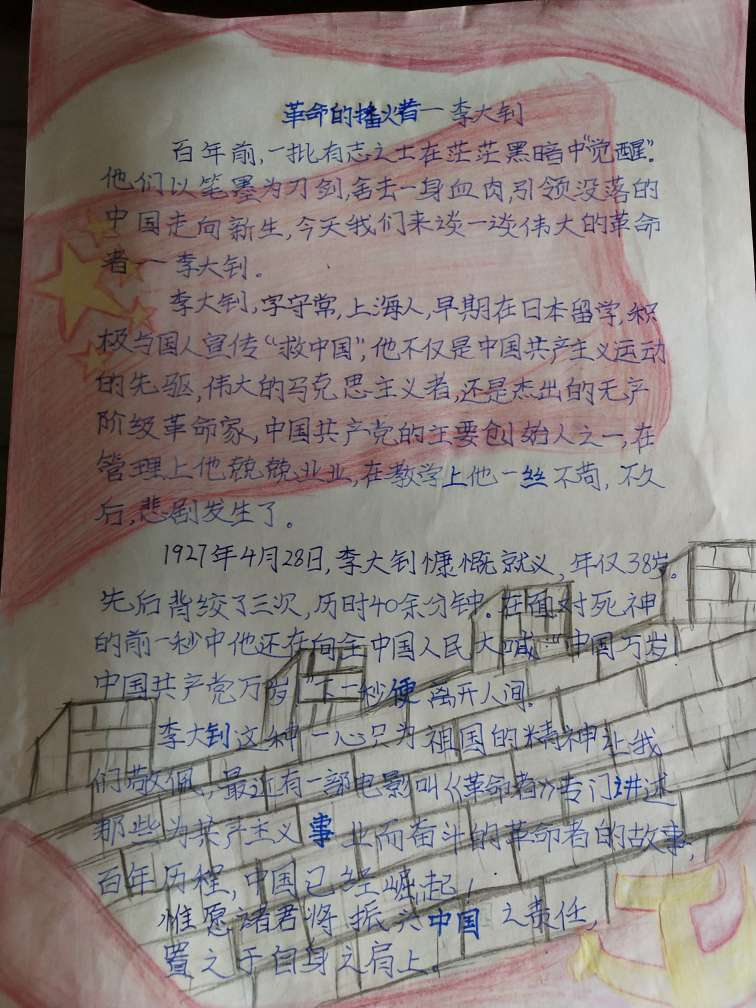 革命的播火者一李大钊
百年前,一批有志之士在茫茫黑暗中“觉醒”。
他们以笔墨为刀剑,舍去一身血肉,引领没落的
中国走向新生,今天我们来谈一谈伟大的革命
者一李大钊。
李大钊,字守常,上海人,早期在日本留学,积
极与国人宣传“救中国”,他不仅是中国共产主义运动
的先驱,伟大的马克思主义者,还是杰出的无产
阶级革命家,中国共产党的主要创始人之一,在
管理上他兢兢业业,在教学上他一丝不苟,不久
后,悲剧发生了。
1927年4月28日,李大钊慷慨就义,年仅38岁。
先后背绞了三次,历时40余分钟。在面对死神
的前一秒中他还在向全中国人民大喊:“中国万岁!
中国共产党万岁!”下一秒便离开人间。
李大钊这种一心只为祖国的精神让我
们敬佩,最近有一部电影叫《革命者》专门讲述
那些为共产主义事业而奋斗的革命者的故事,
百年历程,中国已经崛起!
惟愿诸君将振兴中国之责任,
置之于自身之肩上。